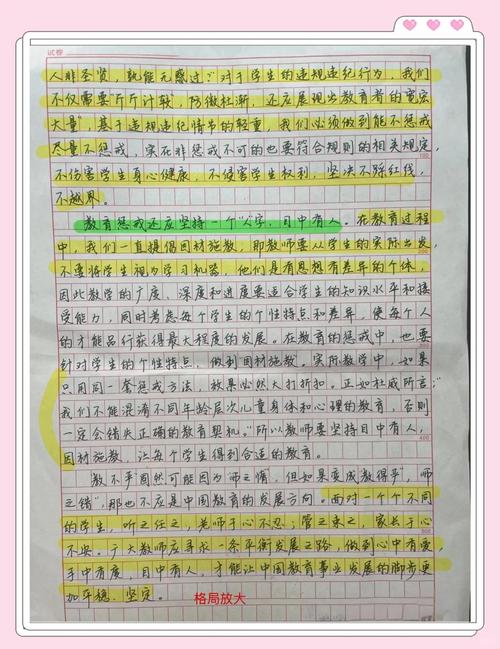 试卷
人非圣贤，孰能无惑过？对于学生的违规违纪行为，我们
不仅需要"斤斤计较"，防微杜渐，还应展现出教育者的宽宏
大量，基于违规违纪情节的轻重，我们必须做到能不惩戒
尽量不惩戒，实在非惩戒不可的也要符合规则的相关规定，
不伤害学生身心健康，不侵害学生权利，坚决不踩红线，
不越界。
教育惩戒还应坚持一个"人"字，目中有人。在教育过程
中，我们一直提倡因材施教，即教师要从学生的实际出发，
不要将学生视为学习机器，他们是有思想有差异的个体，
因此教学的广度、深度和进度要适合学生的知识水平和接
受能力，同时考虑每个学生的个性特点和差异，使每个人
的才能品行获得最大程度的发展。在教育的惩戒中，也要
针对学生的个性特点，做到因材施教。实际教学中，如果
只用同一套惩戒方法，效果必然大打折扣。正如杜威所言：
"我们不能混淆不同年龄层次儿童身体和心理的教育，否则
一定会错失正确的教育契机。"所以教师要坚持目中有人，
因材施教，让每个学生得到合适的教育。
教不严固然可能因为"师之惰"，但如果变成教得严，"师
之错"，那也不应是中国教育的发展方向。面对一个个不同
的学生，听之任之，老师于心不忍；管之束之，家长于心
不安。广大教师应寻求一条平衡发展之路，做到心中有爱，
手中有度，目中有人，才能让中国教育事业发展的脚步更
加平稳、坚定。
格局放大